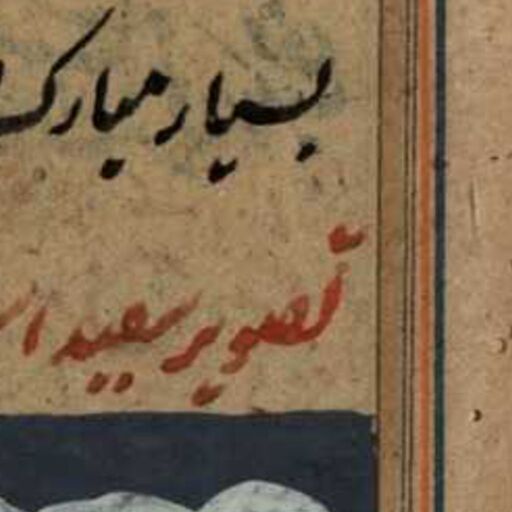 بسیار مبارک
تصویر سعید